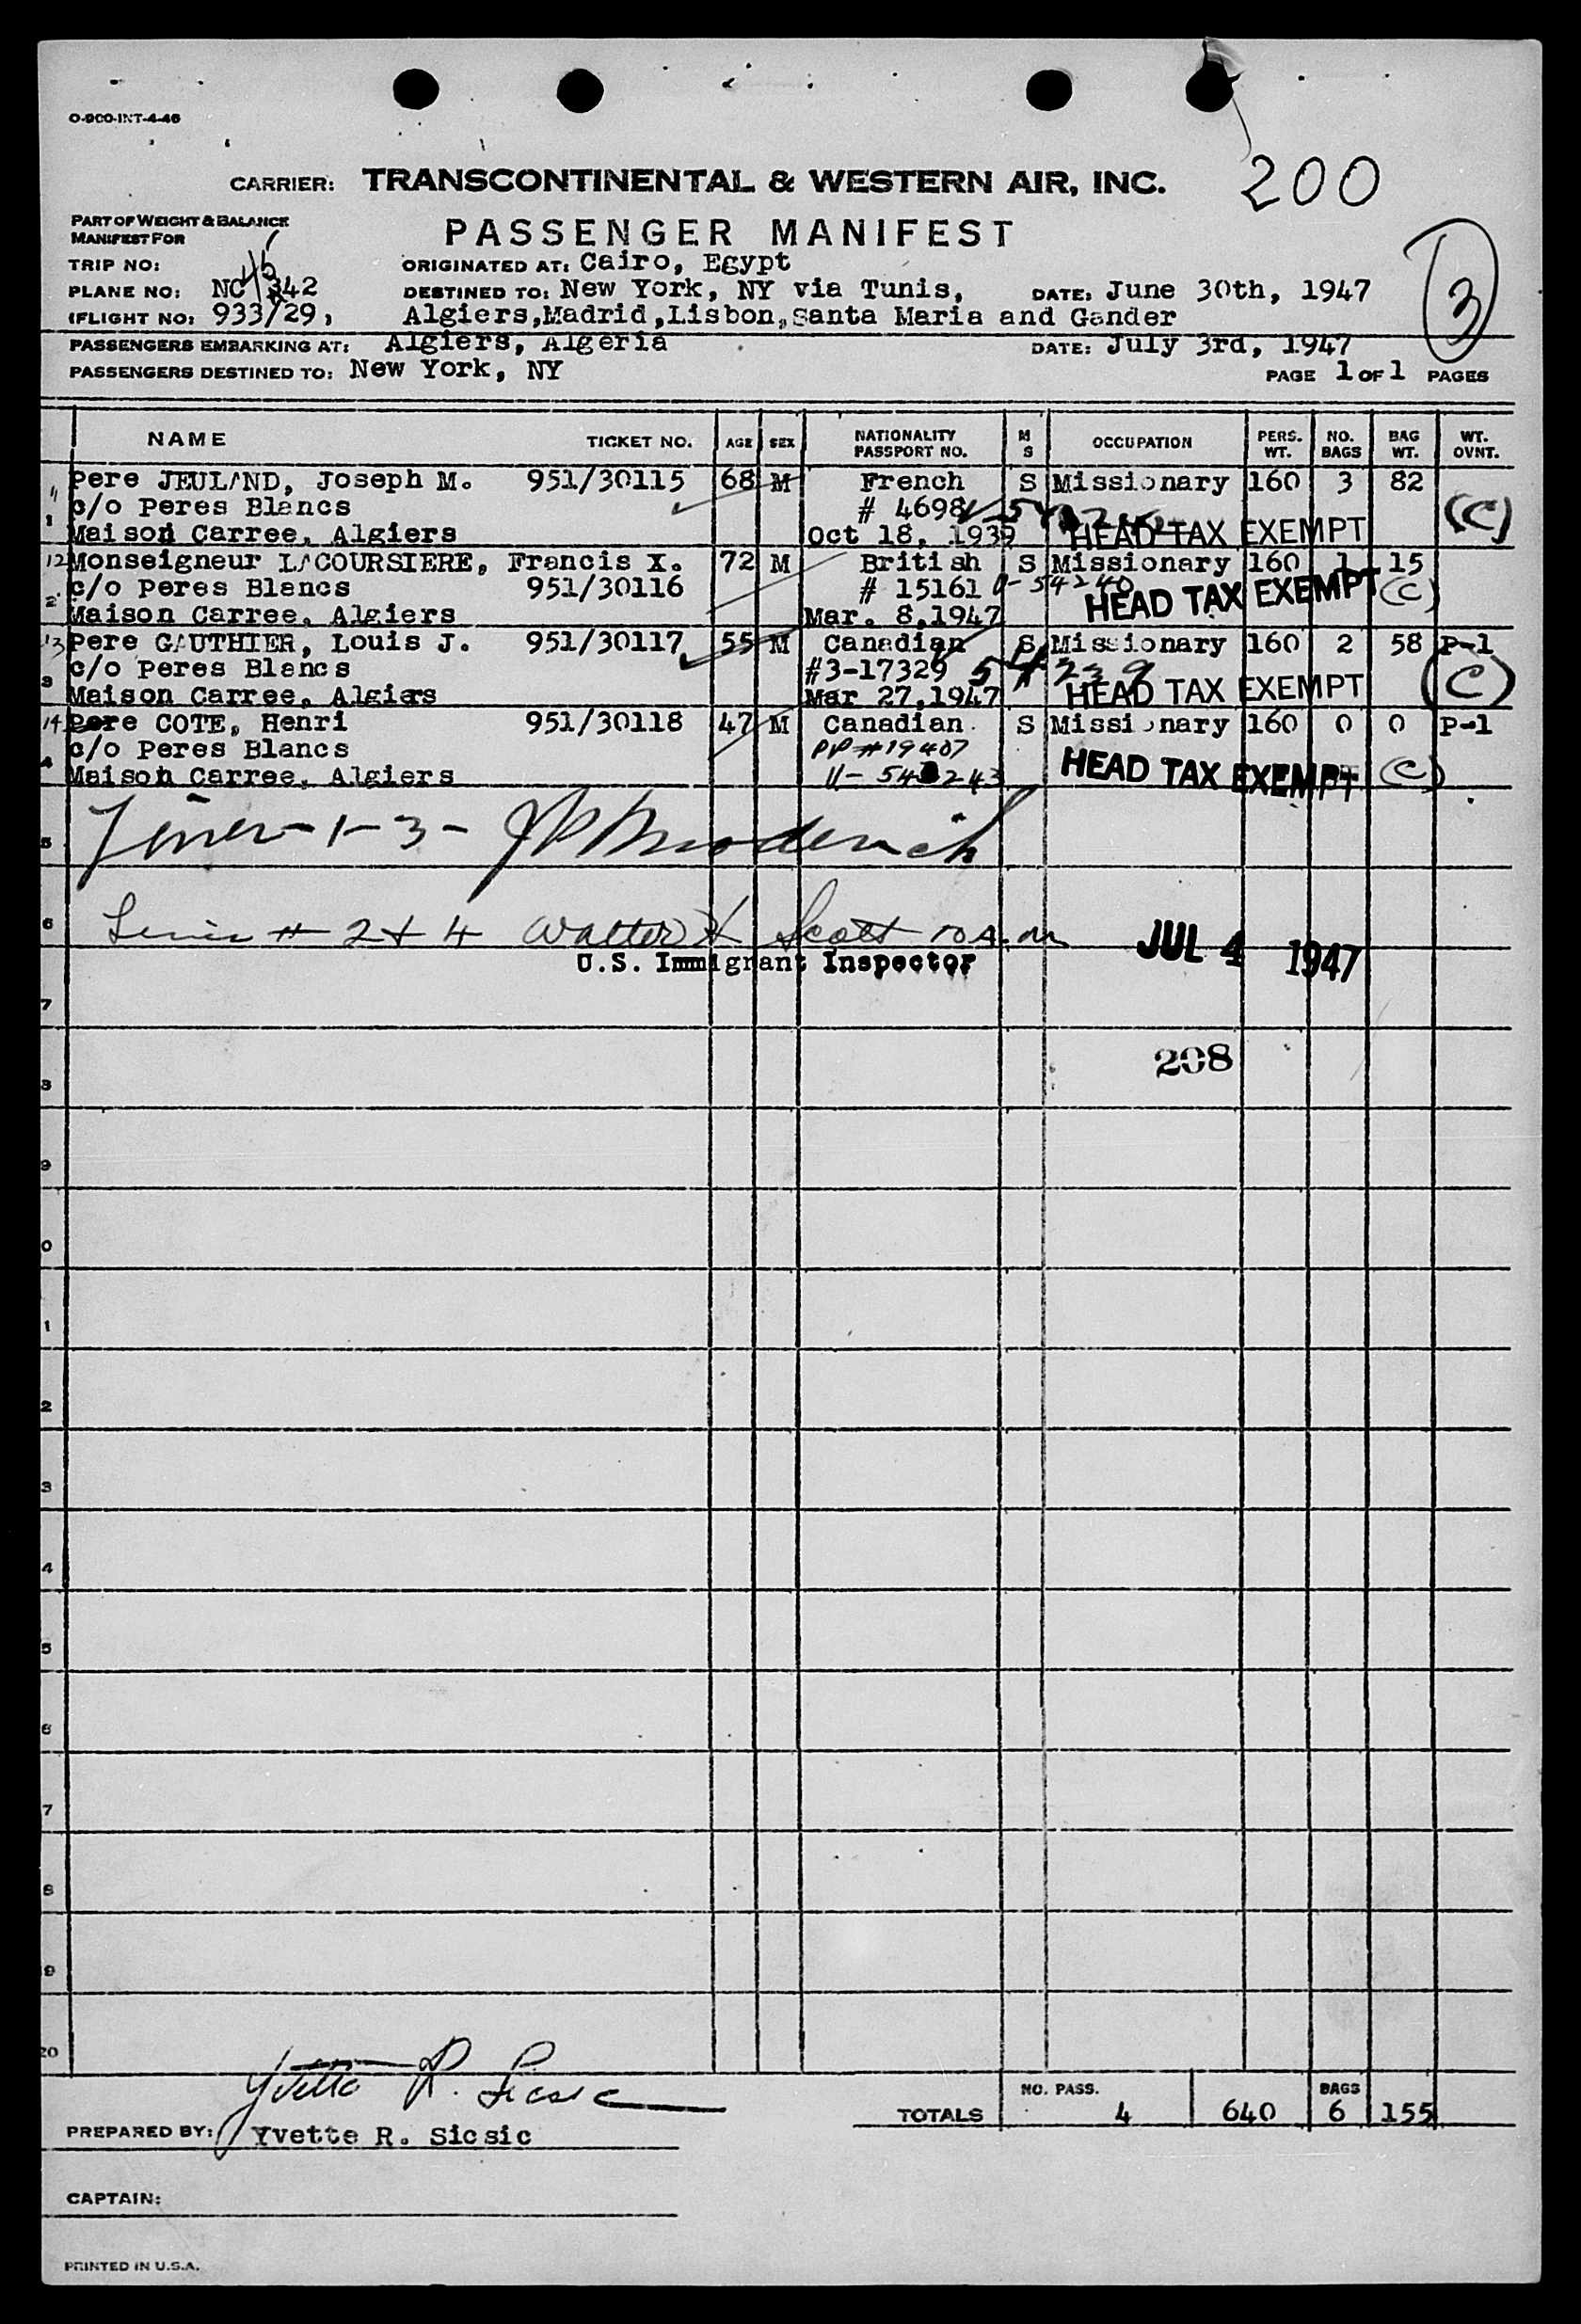 O-900-INT-4-46
200
CARRIER: TRANSCONTINENTAL & WESTERN AIR, INC.
PART OF WEIGHT & BALANCE
MANIFEST FOR
PASSENGER MANIFEST
3
TRIP NO:
ORIGINATED AT: Cairo, Egypt
PLANE NO: NC 45342
DESTINED TO: New York, NY via Tunis, DATE: June 30th, 1947
(FLIGHT NO: 933/29, Algiers,Madrid,Lisbon,Santa Maria and Gander
PASSENGERS EMBARKING AT: Algiers, Algeria DATE: July 3rd, 1947
PASSENGERS DESTINED TO: New York, NY PAGE 1 OF 1 PAGES
NAME TICKET NO. AGE SEX NATIONALITY PASSPORT NO. M S OCCUPATION PERS. WT. NO. BAGS BAG WT. WT. OVNT.
11 Pere JEULAND, Joseph M. 951/30115 68 M French S Missionary 160 3 82
c/o Peres Blancs # 4698 (C)
1 Maison Carree, Algiers Oct 18, 1939 HEAD TAX EXEMPT
12 Monseigneur LACOURSIERE, Francis X. 72 M British S Missionary 160 1 15
2 c/o Peres Blancs 951/30116 # 15161 V-54240 HEAD TAX EXEMPT (C)
Maison Carree, Algiers Mar. 8,1947
13 Pere GAUTHIER, Louis J. 951/30117 55 M Canadian S Missionary 160 2 58 P-1
c/o Peres Blancs #3-17329 54239
3 Maison Carree, Algiers Mar 27,1947 HEAD TAX EXEMPT (C)
14 Pere COTE, Henri 951/30118 47 M Canadian. S Missionary 160 0 0 P-1
c/o Peres Blancs PP#19407
4 Maison Carree, Algiers V-54243 HEAD TAX EXEMPT (C)
5 1-3-
6 # 2 + 4 Walter H Scott JUL 4 1947
U.S. Immigrant Inspector
7
208
8
9
0
1
2
3
4
5
6
7
8
9
20
Yvette R. Sicsic
NO. PASS. BAGS
TOTALS 4 640 6 155
PREPARED BY: Yvette R. Sicsic
CAPTAIN:
PRINTED IN U.S.A.